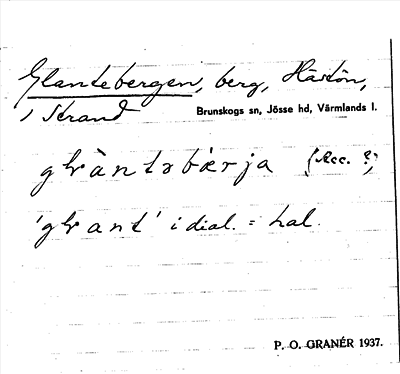 Glantebergen, berg, Hästön,
i Strand
Brunskogs sn, Jösse hd, Värmlands l.
glàntəbærja (Acc. ?)
'glant' i dial. = hal.
P. O. GRANÉR 1937.